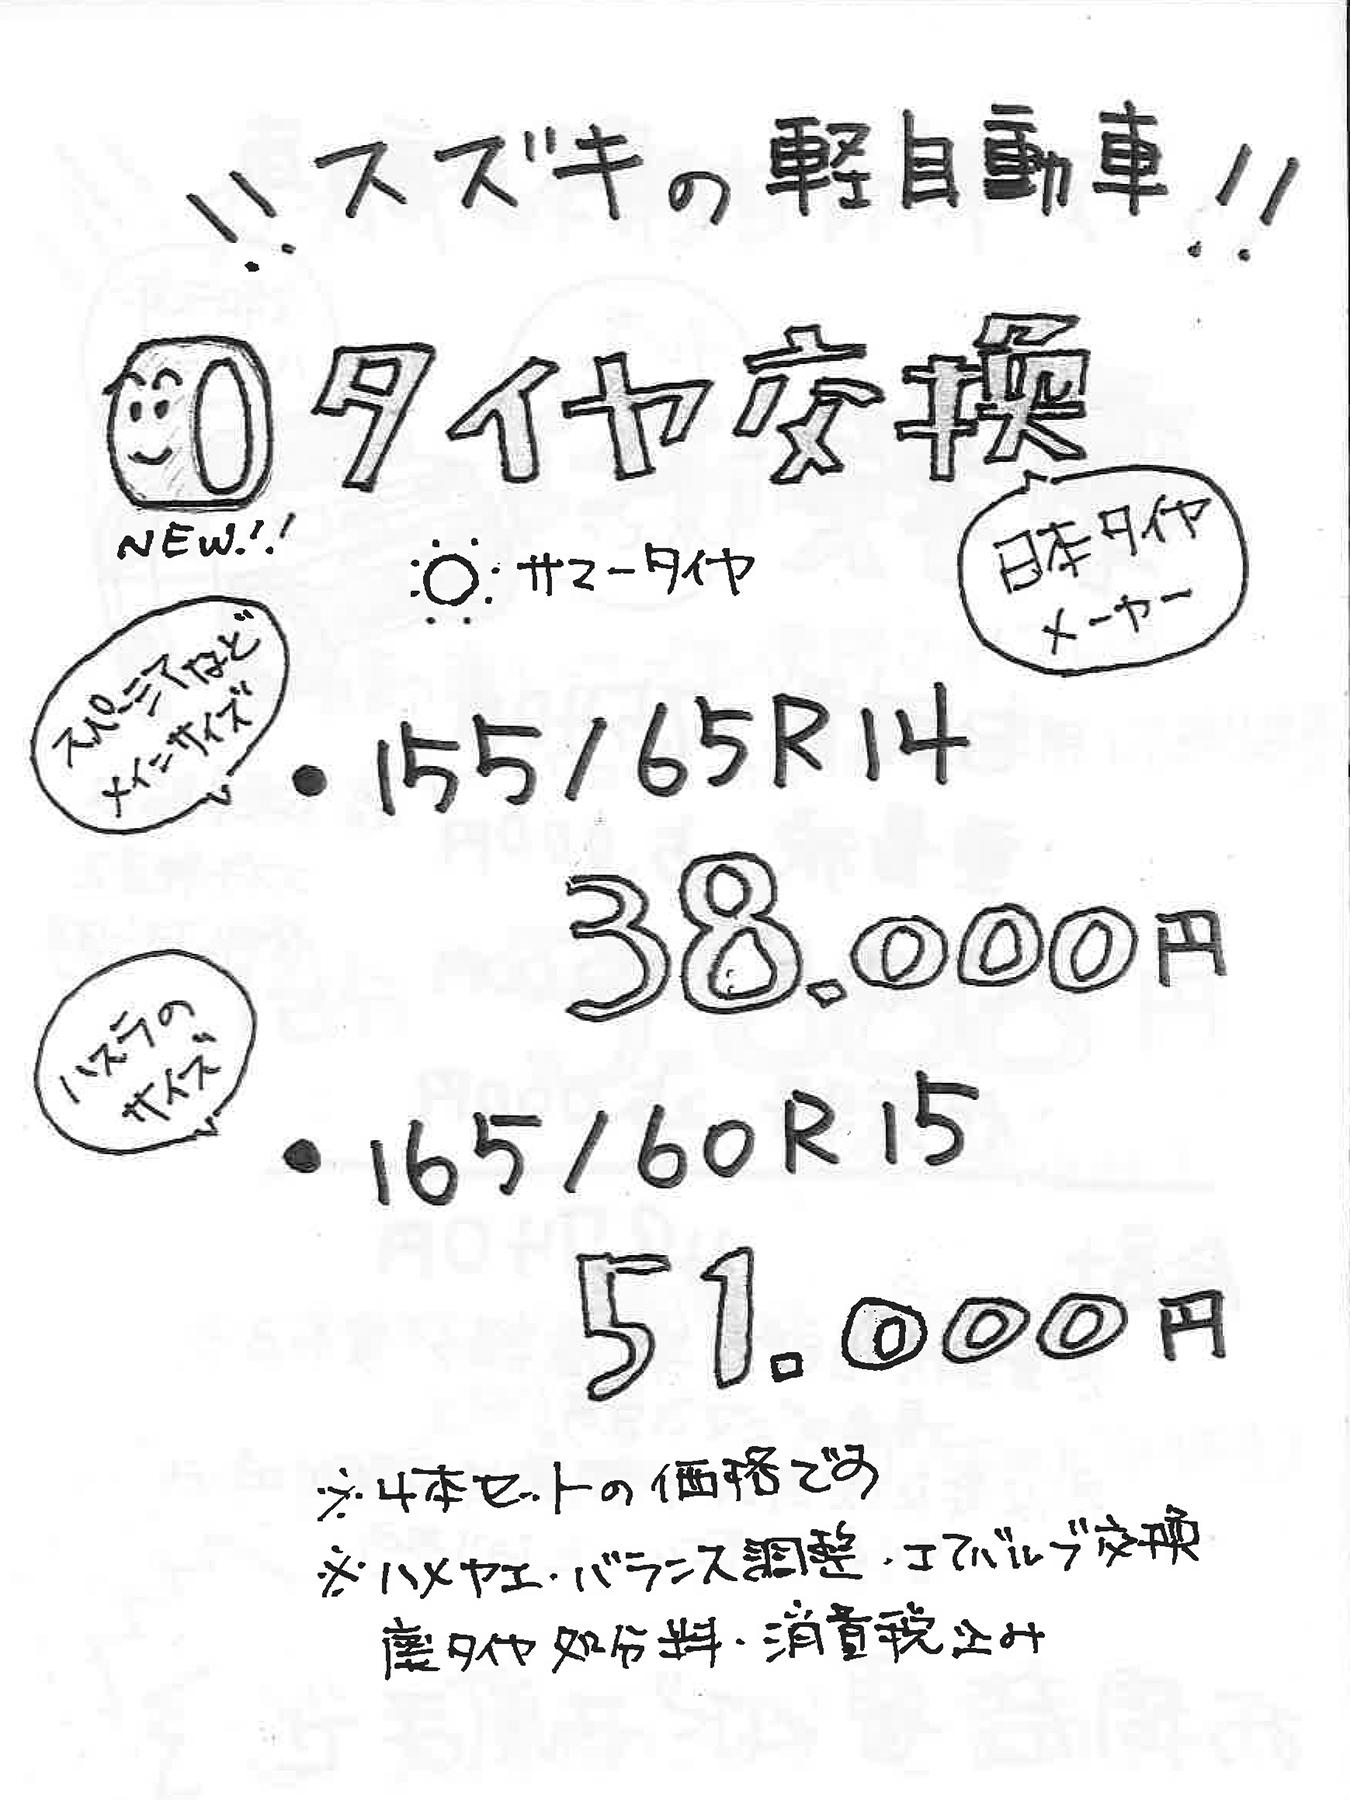 !! スズキの軽自動車 !!
タイヤ交換
NEW!!
サマータイヤ
日本タイヤ
メーカー
スペーシアなど
メインサイズ
・155/65R14
38.000円
ハスラーの
サイズ
・165/60R15
51.000円
※4本セットの価格です
※ハメカエ・バランス調整・エアバルブ交換
廃タイヤ処分料・消費税込み